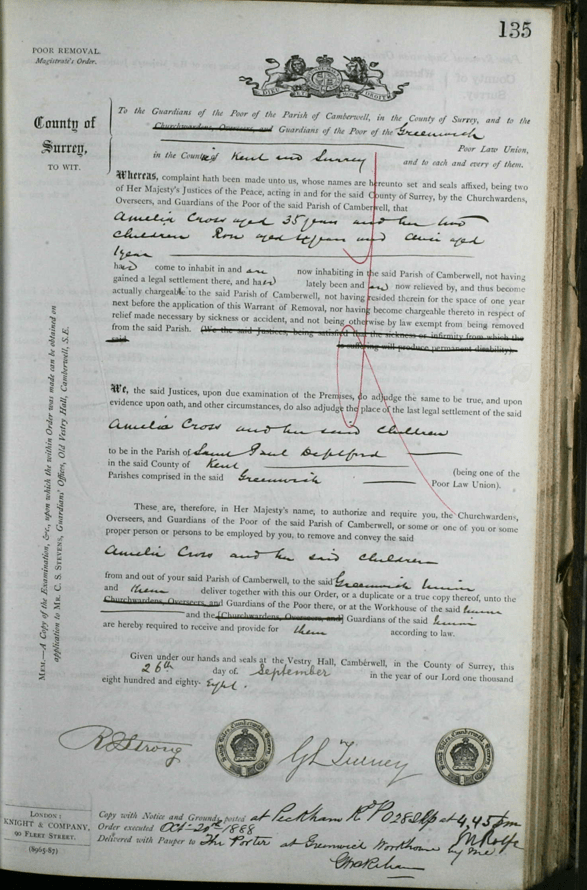 135
POOR REMOVAL.
Magistrate's Order.
County of
Surrey,
TO WIT.
To the Guardians of the Poor of the Parish of Camberwell, in the County of Surrey, and to the
Churchwardens, Overseers, and Guardians of the Poor of the Greenwich
Poor Law Union,
in the County of Kent and Surrey and to each and every of them.
Whereas, complaint hath been made unto us, whose names are hereunto set and seals affixed, being two
of Her Majesty's Justices of the Peace, acting in and for the said County of Surrey, by the Churchwardens,
Overseers, and Guardians of the Poor of the said Parish of Camberwell, that
Amelia Cross aged 35 years and her two
children Rose aged 4 years and aged
1 year
had come to inhabit in and are now inhabiting in the said Parish of Camberwell, not having
gained a legal settlement there, and had lately been and are now relieved by, and thus become
actually chargeable to the said Parish of Camberwell, not having resided therein for the space of one year
next before the application of this Warrant of Removal, nor having become chargeable thereto in respect of
relief made necessary by sickness or accident, and not being otherwise by law exempt from being removed
from the said Parish. (We the said Justices, being satisfied that the sickness or infirmity from which the
said is suffering will produce permanent disability).
We, the said Justices, upon due examination of the Premises, do adjudge the same to be true, and upon
evidence upon oath, and other circumstances, do also adjudge the place of the last legal settlement of the said
Amelia Cross and her said children
to be in the Parish of Saint Paul Deptford
in the said County of Kent (being one of the
Parishes comprised in the said Greenwich Poor Law Union).
These are, therefore, in Her Majesty's name, to authorize and require you, the Churchwardens,
Overseers, and Guardians of the Poor of the said Parish of Camberwell, or some or one of you or some
proper person or persons to be employed by you, to remove and convey the said
Amelia Cross and her said children
from and out of your said Parish of Camberwell, to the said Greenwich Union
and them deliver together with this our Order, or a duplicate or a true copy thereof, unto the
Churchwardens, Overseers, and Guardians of the Poor there, or at the Workhouse of the said Union
and the [Churchwardens, Overseers, and] Guardians of the said Union
are hereby required to receive and provide for them according to law.
Given under our hands and seals at the Vestry Hall, Camberwell, in the County of Surrey, this
26th day of September in the year of our Lord one thousand
eight hundred and eighty- Eight.
R Strong
G L Turney
MEM.—A Copy of the Examination, &c., upon which the within Order was made can be obtained on
application to MR. C. S. STEVENS, Guardians' Offices, Old Vestry Hall, Camberwell, S.E.
LONDON:
KNIGHT & COMPANY,
90 FLEET STREET.
(8965-87)
Copy with Notice and Grounds posted at Peckham Rd P O 28 Sep at 4,45 pm
Order executed Oct 20th 1888 Rolfe
Delivered with Pauper to The Porter at Greenwich Workhouse by me